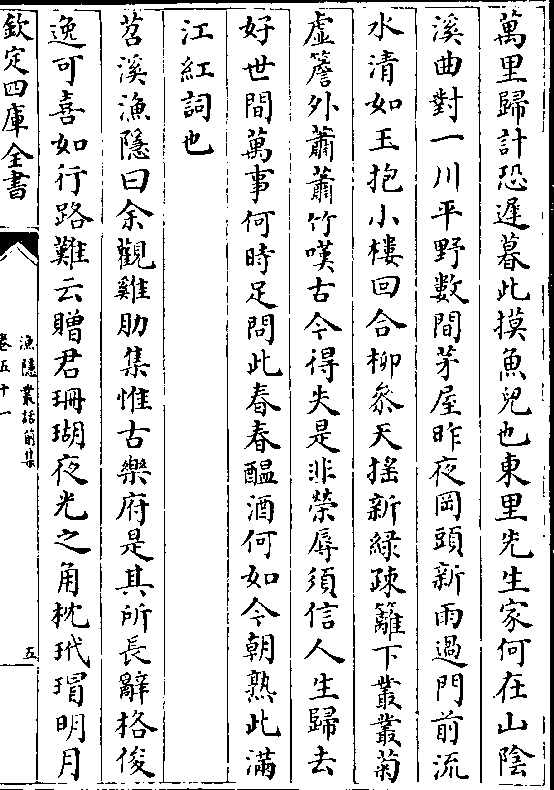 萬里歸計恐遲暮此摸魚兒也東里先生家何在山陰
溪曲對一川平野數間茅屋昨夜岡頭新雨過門前流
水清如玉抱小樓回合柳叅天揺新綠疎籬下叢叢菊
虚簷外蕭蕭竹嘆古今得失是非榮辱須信人生歸去
好世間萬事何時足問此春春醖酒何如今朝熟此滿
江紅詞也
苕溪漁隱曰余觀雞肋集惟古樂府是其所長辭格俊
逸可喜如行路難云贈君珊瑚夜光之角枕玳瑁明月
欽定四庫全書
漁隱叢話前集
卷五十一
五